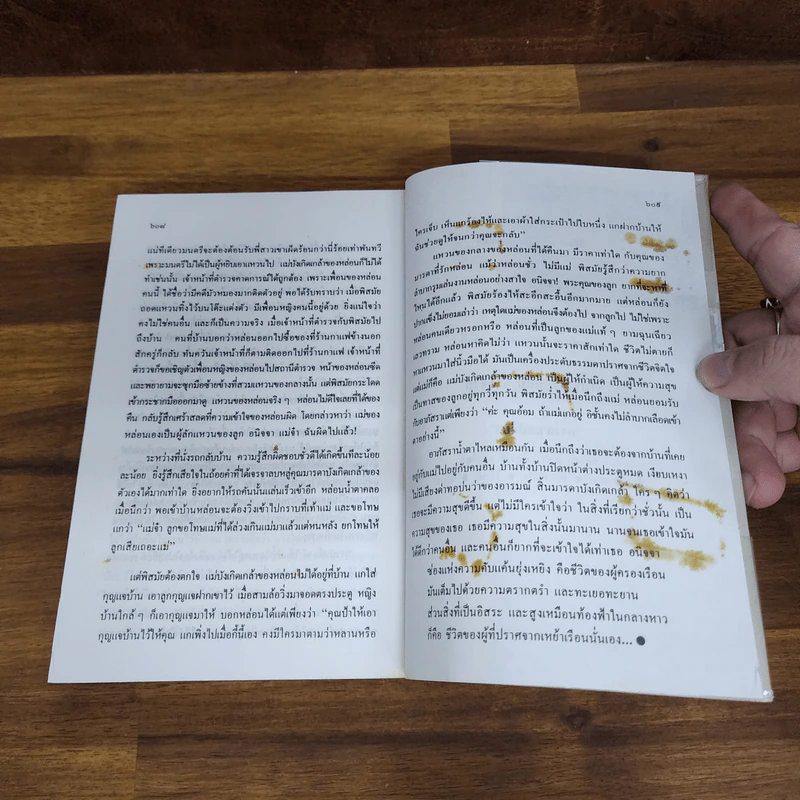 ๖๐๘
แน่ทีเดียวมนตรีจะต้องต้อนรับพี่สาวเขาเผ็ดร้อนกว่านี่ร้อยเท่าพันทวี
เพราะมนตรีไม่ได้เป็นผู้หยิบเอาแหวนไป แม่บังเกิดเกล้าของหล่อนก็ไม่ได้
ทำเช่นนั้น เจ้าหน้าที่ตำรวจคาดการณ์ได้ถูกต้อง เพราะเพื่อนของหล่อน
คนนี้ ได้ชื่อว่ามีคดีมัวหมองมากติดตัวอยู่ พอได้รับทราบว่า เมื่อพิสมัย
ถอดแหวนทิ้งไว้บนโต๊ะแต่งตัว มีเพื่อนหญิงคนนี้อยู่ด้วย ยิ่งแน่ใจว่า
คงไม่ใช่คนอื่น และก็เป็นความจริง เมื่อเจ้าหน้าที่ตำรวจกับพิสมัยไป
ถึงบ้าน คนที่บ้านบอกว่าหล่อนออกไปซื้อของที่ร้านกาแฟข้างนอก
สักครู่ก็กลับ ทันควันเจ้าหน้าที่ก็ตามติดออกไปที่ร้านกาแฟ เจ้าหน้าที่
ตำรวจก็ขอเชิญตัวเพื่อนหญิงของหล่อนไปสถานีตำรวจ หน้าของหล่อนซีด
และพยายามจะซุกมือซ้ายข้างที่สวมแหวนของหล่อนนั้น แต่พิสมัยกระโดด
เข้ากระชากมือออกมาดู แหวนของหล่อนจริง ๆ หล่อนไม่ดีใจเลยที่ได้ของ
คืน กลับรู้สึกเศร้าสลดที่ความเข้าใจของหล่อนผิด โดยกล่าวหาว่า แม่ของ
หล่อนเองเป็นผู้ลักแหวนของลูก อนิจจา แม่จ๋า ฉันผิดไปแล้ว!
ระหว่างที่นั่งรถกลับบ้าน ความรู้สึกผิดชอบชั่วดีได้เกิดขึ้นทีละน้อย
ละน้อย ยิ่งรู้สึกเสียใจในถ้อยคำที่ได้เจรจาลบหลู่คุณมารดาบังเกิดเกล้าของ
ตัวเองได้มากเท่าใด ยิ่งอยากให้รถคันนั้นแล่นเร็วเข้าอีก หล่อนน้ำตาคลอ
เมื่อนึกว่า พอเข้าบ้านหล่อนจะต้องวิ่งเข้าไปกราบที่เท้าแม่ และขอโทษ
แกว่า “แม่จ๋า ลูกขอโทษแม่ที่ได้ล่วงเกินแม่มาแล้วแต่หนหลัง ยกโทษให้
ลูกเสียเถอะแม่”
แต่พิสมัยต้องตกใจ แม่บังเกิดเกล้าของหล่อนไม่ได้อยู่ที่บ้าน แกใส่
กุญแจบ้าน เอาลูกกุญแจฝากเขาไว้ เมื่อสามล้อวิ่งมาจอดตรงประตู หญิง
บ้านใกล้ ๆ ก็เอากุญแจมาให้ บอกหล่อนได้แต่เพียงว่า “คุณป้าให้เอา
กุญแจบ้านไว้ให้คุณ แกเพิ่งไปเมื่อกี้นี้เอง คงมีใครมาตามว่าหลานหรือ
๖๐๙
ใครเจ็บ เห็นแกร้องไห้และเอาผ้าใส่กระเป๋าไปใบหนึ่ง แกฝากบ้านให้
ฉันช่วยดูให้จนกว่าคุณจะกลับ”
แหวนของกลางของหล่อนที่ได้คืนมา มีราคาเท่าใด กับคุณของ
มารดาที่รักหล่อน แม้ว่าหล่อนชั่ว ไม่มีแม่ พิสมัยรู้สึกว่าความยาก
ลำบากรุมเล่นงานหล่อนอย่างสาใจ อนิจจา! พระคุณของลูก ยากที่จะหาที่
ไหนได้อีกแล้ว พิสมัยร้องไห้สะอึกสะอื้นอีกมากมาย แต่หล่อนก็ยัง
ปากแข็งไม่ยอมเล่าว่า เหตุใดแม่ของหล่อนจึงต้องไป จากลูกไป ไม่ใช่เพราะ
หล่อนคนเดียวหรอกหรือ หล่อนที่เป็นลูกของแม่แท้ ๆ ยามฉุนเฉียว
เลวทราม หล่อนหาคิดไม่ว่า แหวนนั้นจะราคาสักเท่าใด ชีวิตไม่ตายก็
หาแหวนมาใส่นิ้วมือได้ มันเป็นเครื่องประดับธรรมดาปราศจากชีวิตจิตใจ
แต่แม่ก็คือ แม่บังเกิดเกล้าของหล่อน เป็นผู้ให้กำเนิด เป็นผู้ให้ความสุข
เป็นทาสของลูกอยู่ทุกวี่ทุกวัน พิสมัยร่ำไห้เมื่อนึกถึงแม่ หล่อนยอมรับ
กับอาภัสราแต่เพียงว่า “ค่ะ คุณอ้อม ถ้าแม่แก่อยู่ อิชั้นคงไม่ลำบากเลือดเข้า
ตาอย่างนี้”
อาภัสราน้ำตาไหลเหมือนกัน เมื่อนึกถึงว่าเธอจะต้องจากบ้านที่เคย
อยู่กับแม่ไปอยู่กับคนอื่น บ้านทั้งบ้านปิดหน้าต่างประตูหมด เงียบเหงา
ไม่มีเสียงด่าทอบ่นว่าของอารมณ์ สิ้นมารดาบังเกิดเกล้า ใคร ๆ คิดว่า
เธอจะมีความสุขดีขึ้น แต่ไม่มีใครเข้าใจว่า ในสิ่งที่เรียกว่าชั่วนั้น เป็น
ความสุขของเธอ เธอมีความสุขในสิ่งนั้นมานาน นานจนเธอเข้าใจมัน
ได้ดีกว่าคนอื่น และคนอื่นก็ยากที่จะเข้าใจได้เท่าเธอ อนิจจา
ช่องแห่งความคับแค้นยุ่งเหยิง คือชีวิตของผู้ครองเรือน
มันเต็มไปด้วยความตรากตรำ และทะเยอทะยาน
ส่วนสิ่งที่เป็นอิสระ และสูงเหมือนท้องฟ้าในกลางหาว
ก็คือ ชีวิตของผู้ที่ปราศจากเหย้าเรือนนั่นเอง... ●